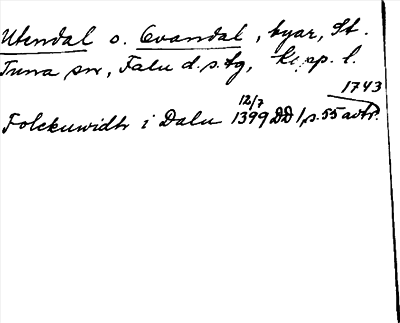 Utendal o. Evandal, byar, St.
Tuna sn, Falu d.s. tg, Kopp. l.
1743
12/7
Folckuwidh i Dalu 1399 DD 1, s. 55 avtr.